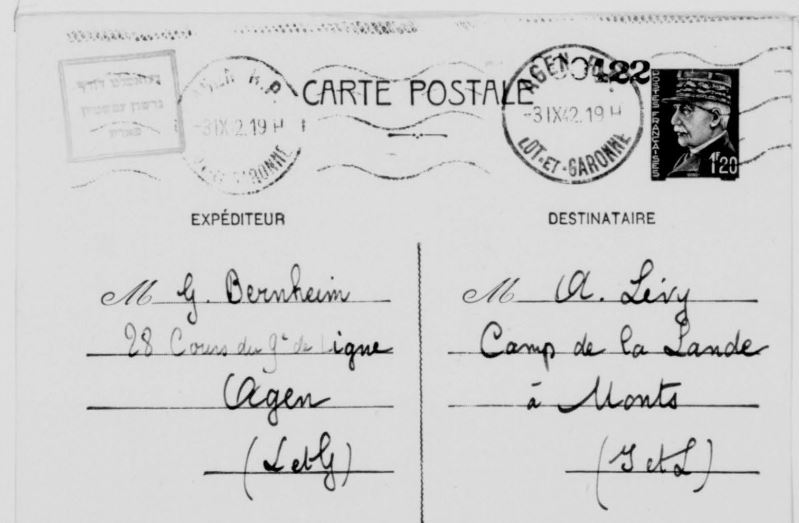 00422
CARTE POSTALE
AGEN R.P.
-3 IX 42.19 H
LOT-ET-GARONNE
AGEN R.P.
-3 IX 2.19 H
GARONNE
POSTES FRANÇAISES
1F20
EXPÉDITEUR
M G. Bernheim
28 Cours du 9e de ligne
Agen
(L et G)
DESTINATAIRE
M A. Lévy
Camp de la Lande
à Monts
(I et L)